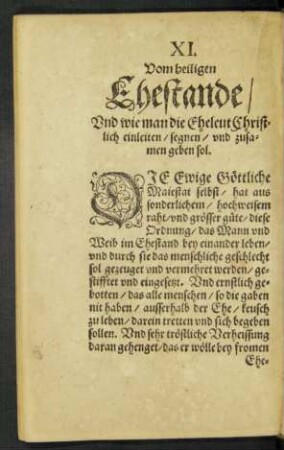 XI.
Vom heiligen
Ehestande /
Vnd wie man die Eheleut Christ-
lich einleiten / segnen / vnd zusa-
men geben sol.
DIE Ewige Göttliche
Maiestat selbst / hat aus
sonderlichem / hochweisem
raht / vnd grösser güte / diese
Ordnung / das Mann vnd
Weib im Ehestand bey einander leben /
vnd durch sie das menschliche geschlecht
sol gezeuget vnd vermehret werden / ge-
stifftet vnd eingesetzt. Vnd ernstlich ge-
botten / das alle menschen / so die gaben
nit haben / ausserhalb der Ehe / keusch
zu leben / darein tretten vnd sich begeben
sollen. Vnd sehr tröstliche Verheissung
daran gehenget / das er wölle bey fromen
Ehe-